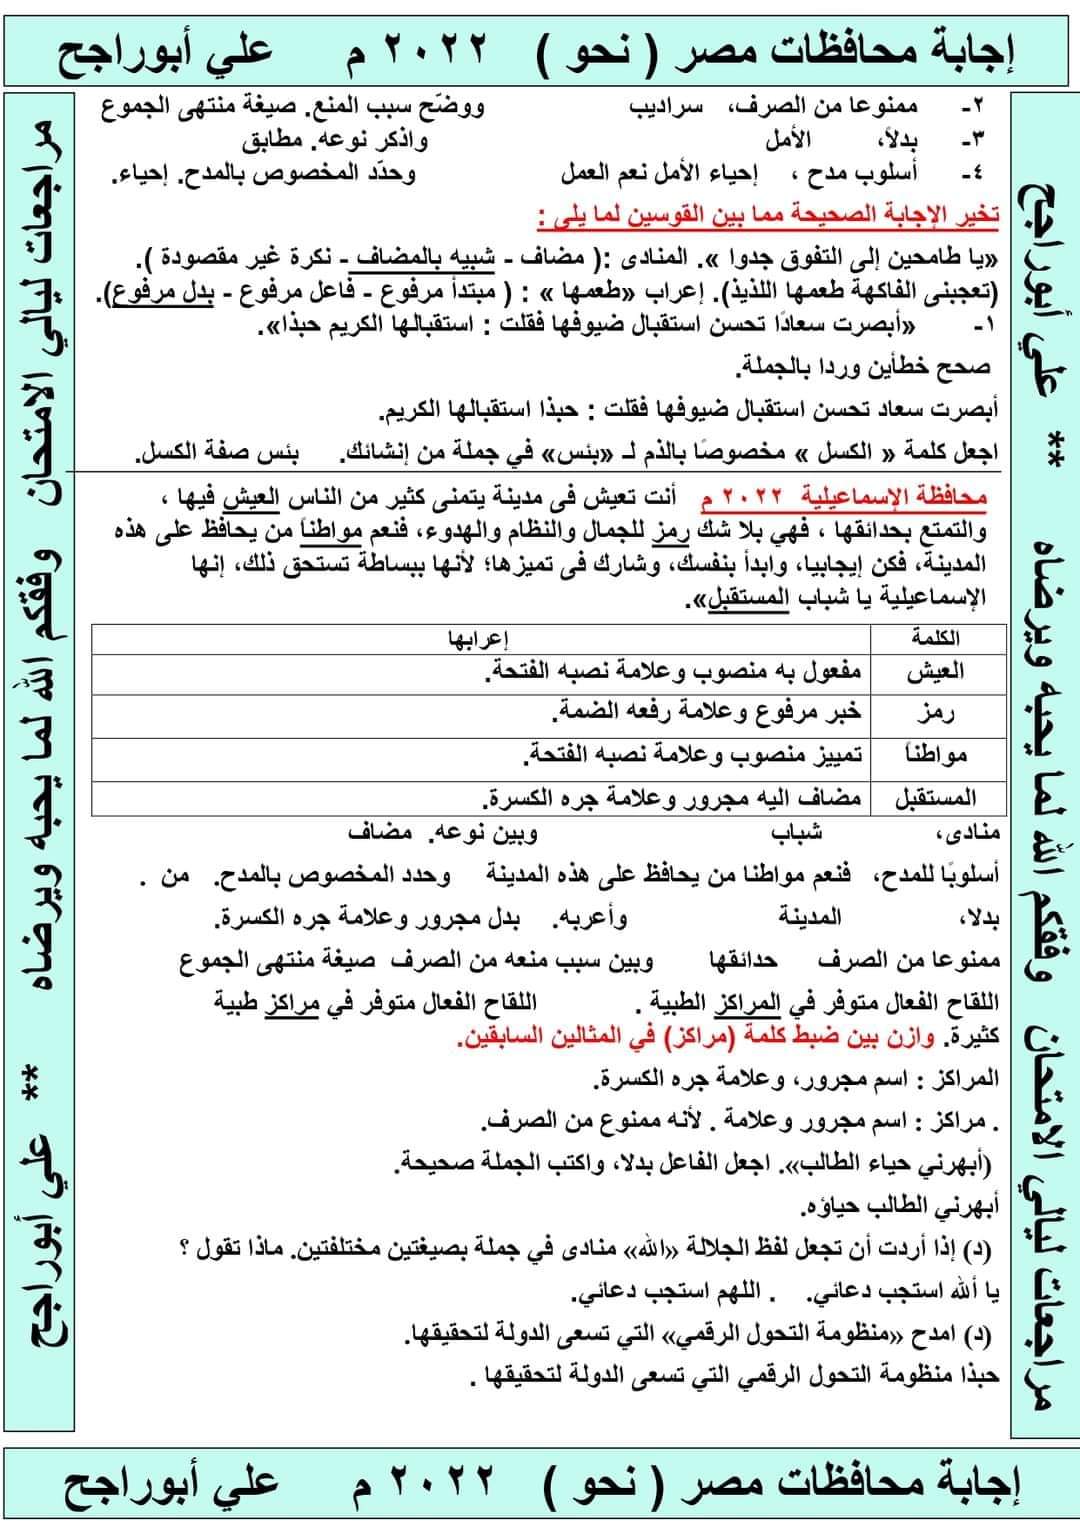 إجابة محافظات مصر ( نحو ) ٢٠٢٢ م علي أبوراجح
٢- ممنوعا من الصرف، سراديب ووضّح سبب المنع. صيغة منتهى الجموع
٣- بدلاً، الأمل واذكر نوعه. مطابق
٤- أسلوب مدح ، إحياء الأمل نعم العمل وحدّد المخصوص بالمدح. إحياء.
تخير الإجابة الصحيحة مما بين القوسين لما يلى :
«يا طامحين إلى التفوق جدوا ». المنادى :( مضاف - شبيه بالمضاف - نكرة غير مقصودة ).
(تعجبنى الفاكهة طعمها اللذيذ). إعراب «طعمها » : ( مبتدأ مرفوع - فاعل مرفوع - بدل مرفوع).
١- «أبصرت سعادًا تحسن استقبال ضيوفها فقلت : استقبالها الكريم حبذا».
صحح خطأين وردا بالجملة.
أبصرت سعاد تحسن استقبال ضيوفها فقلت : حبذا استقبالها الكريم.
اجعل كلمة « الكسل » مخصوصًا بالذم لـ «بئس» في جملة من إنشائك. بئس صفة الكسل.
محافظة الإسماعيلية ٢٠٢٢ م أنت تعيش فى مدينة يتمنى كثير من الناس العيش فيها ،
والتمتع بحدائقها ، فهي بلا شك رمز للجمال والنظام والهدوء، فنعم مواطناً من يحافظ على هذه
المدينة، فكن إيجابيا، وابدأ بنفسك، وشارك فى تميزها؛ لأنها ببساطة تستحق ذلك، إنها
الإسماعيلية يا شباب المستقبل».
الكلمة إعرابها
العيش مفعول به منصوب وعلامة نصبه الفتحة.
رمز خبر مرفوع وعلامة رفعه الضمة.
مواطناً تمييز منصوب وعلامة نصبه الفتحة.
المستقبل مضاف اليه مجرور وعلامة جره الكسرة.
منادى، شباب وبين نوعه. مضاف
أسلوبًا للمدح، فنعم مواطنا من يحافظ على هذه المدينة وحدد المخصوص بالمدح. من .
بدلا، المدينة وأعربه. بدل مجرور وعلامة جره الكسرة.
ممنوعا من الصرف حدائقها وبين سبب منعه من الصرف صيغة منتهى الجموع
اللقاح الفعال متوفر في المراكز الطبية . اللقاح الفعال متوفر في مراكز طبية
كثيرة. وازن بين ضبط كلمة (مراكز) في المثالين السابقين.
المراكز : اسم مجرور، وعلامة جره الكسرة.
. مراكز : اسم مجرور وعلامة . لأنه ممنوع من الصرف.
(أبهرني حياء الطالب». اجعل الفاعل بدلا، واكتب الجملة صحيحة.
أبهرني الطالب حياؤه.
(د) إذا أردت أن تجعل لفظ الجلالة «الله» منادى في جملة بصيغتين مختلفتين. ماذا تقول ؟
يا ألله استجب دعائي. . اللهم استجب دعائي.
(د) امدح «منظومة التحول الرقمي» التي تسعى الدولة لتحقيقها.
حبذا منظومة التحول الرقمي التي تسعى الدولة لتحقيقها .
إجابة محافظات مصر ( نحو ) ٢٠٢٢ م علي أبوراجح
مراجعات ليالي الامتحان وفقكم الله لما يحبه ويرضاه ** علي أبوراجح
مراجعات ليالي الامتحان وفقكم الله لما يحبه ويرضاه ** علي أبوراجح